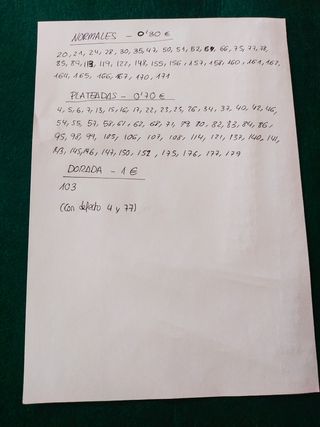 NORMALES - 0'30 €
20, 21, 24, 28, 30, 35, 47, 50, 51, 52, 64, 66, 75, 77, 78,
85, 87, 113, 119, 122, 148, 155, 156, 157, 158, 160, 161, 162,
164, 165, 166, 167, 170, 171
PLATEADAS - 0'70 €
4, 5, 6, 7, 13, 15, 16, 17, 22, 23, 25, 26, 34, 37, 40, 42, 46,
54, 55, 57, 58, 61, 62, 68, 71, 79, 80, 82, 83, 84, 86,
95, 98, 99, 105, 106, 107, 108, 114, 121, 137, 140, 141,
143, 145, 146, 147, 150, 152, 175, 176, 177, 179
DORADA - 1 €
103
(Con defecto 4 y 77)